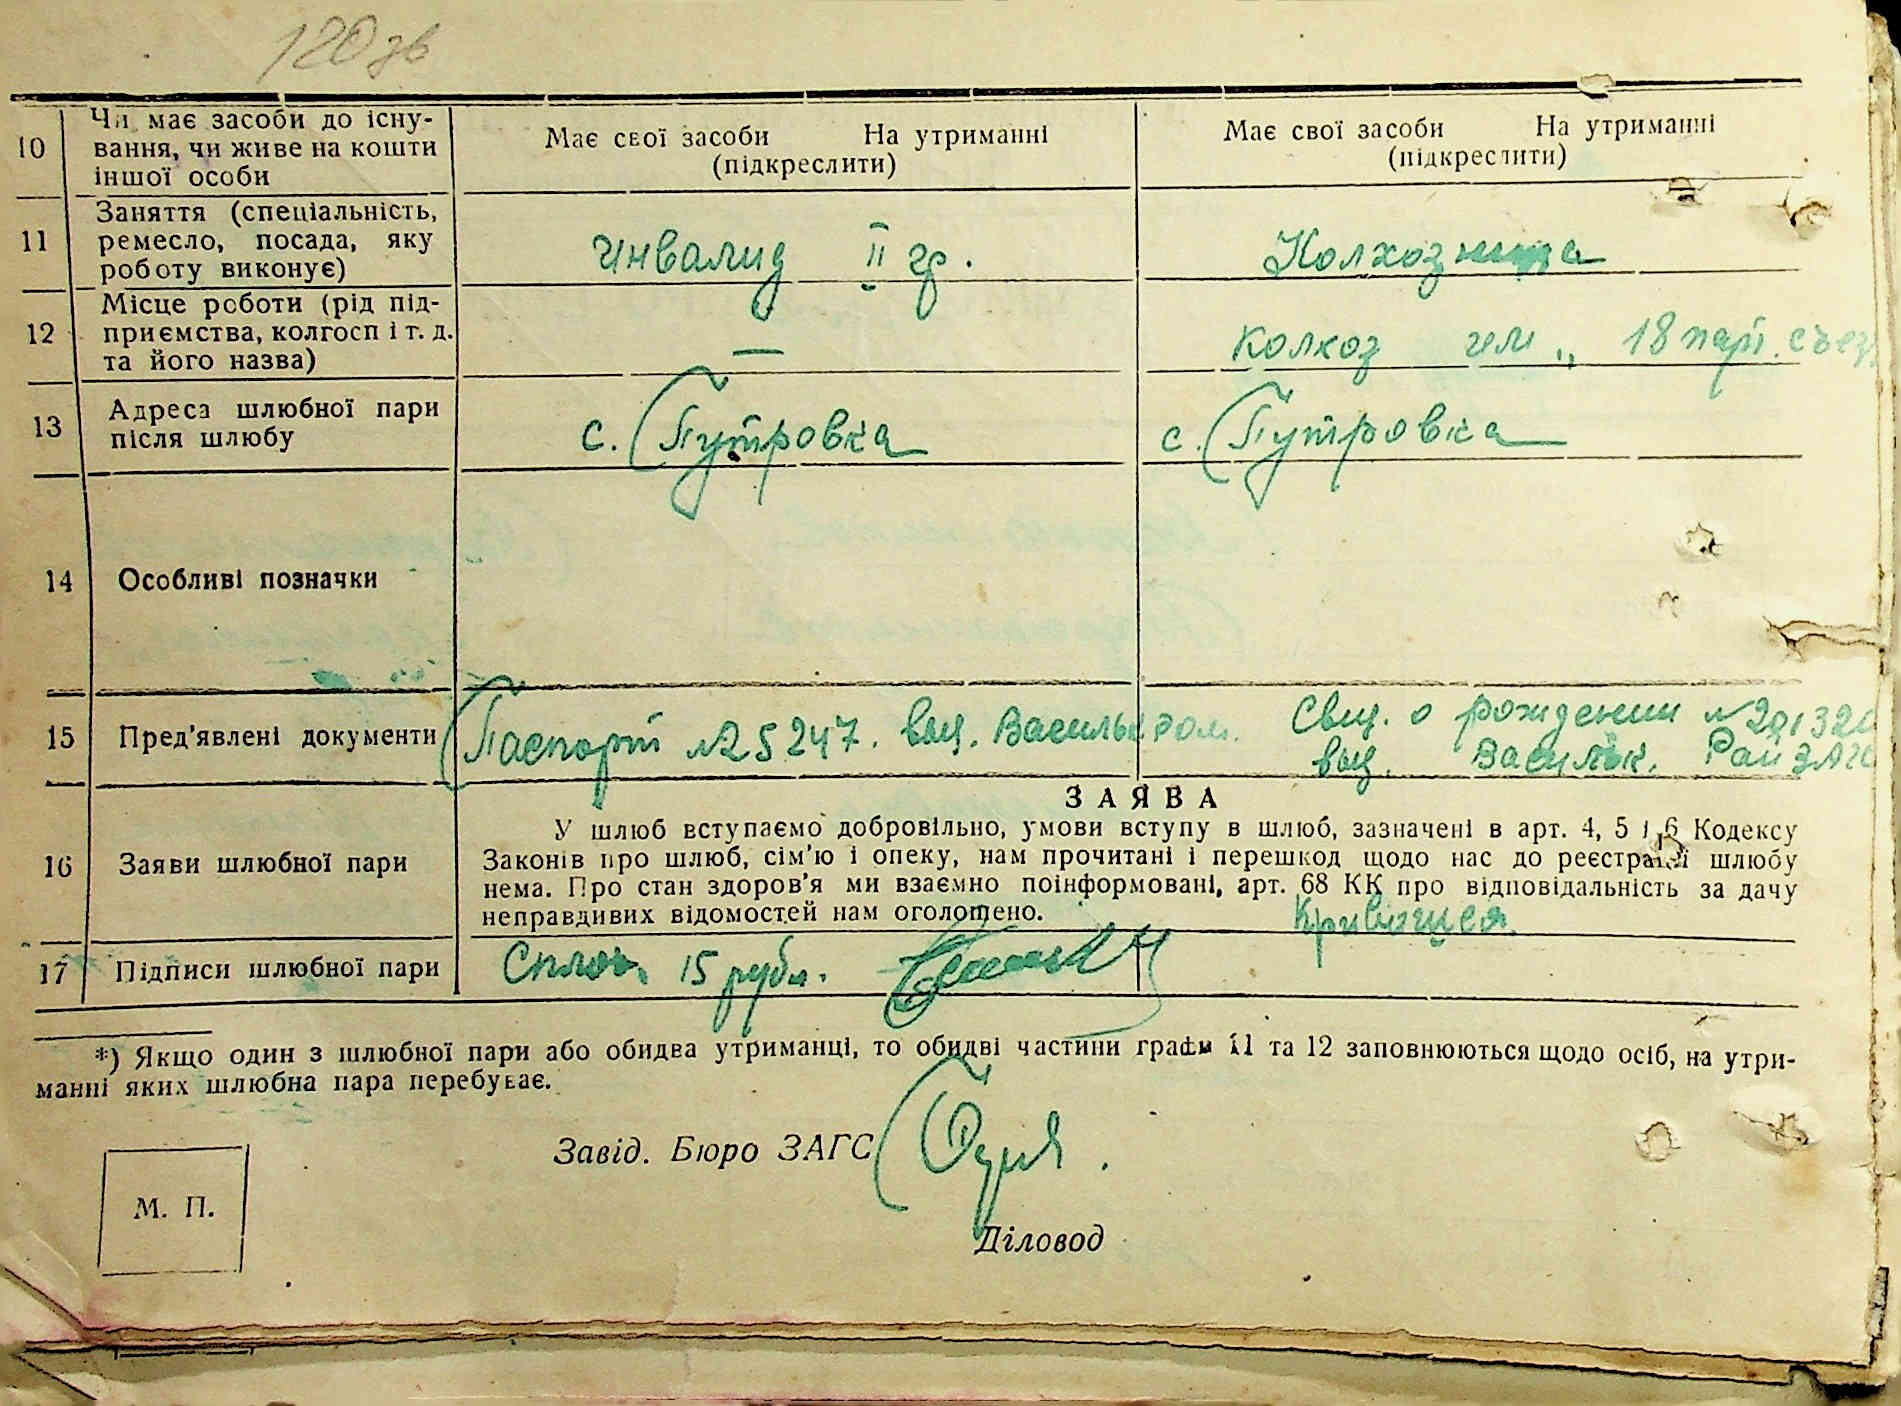 120 зв
10 Чи має засоби до існу-
вання, чи живе на кошти
іншої особи
Має свої засоби На утриманні
(підкреслити)
Має свої засоби На утриманні
(підкреслити)
11 Заняття (спеціальність,
ремесло, посада, яку
роботу виконує)
Инвалид II гр.
Колхозница
12 Місце роботи (рід під-
приємства, колгосп і т. д.
та його назва)
—
Колхоз им „ 18 парт. съезд
13 Адреса шлюбної пари
після шлюбу
с. Путровка
с. Путровка
14 Особливі позначки
15 Пред'явлені документи
Паспорт № 25247. выд. Васильк
Свид. о рождении №
выд. Васильк. РайЗАГС
16 Заяви шлюбної пари
ЗАЯВА
У шлюб вступаємо добровільно, умови вступу в шлюб, зазначені в арт. 4, 5 і 6 Кодексу
Законів про шлюб, сім'ю і опеку, нам прочитані і перешкод щодо нас до реєстрації шлюбу
нема. Про стан здоров'я ми взаємно поінформовані, арт. 68 КК про відповідальність за дачу
неправдивих відомостей нам оголошено.
17 Підписи шлюбної пари
15 рубл.
*) Якщо один з шлюбної пари або обидва утриманці, то обидві частини графи 11 та 12 заповнюються щодо осіб, на утри-
манні яких шлюбна пара перебуває.
Завід. Бюро ЗАГС
М. П.
Діловод